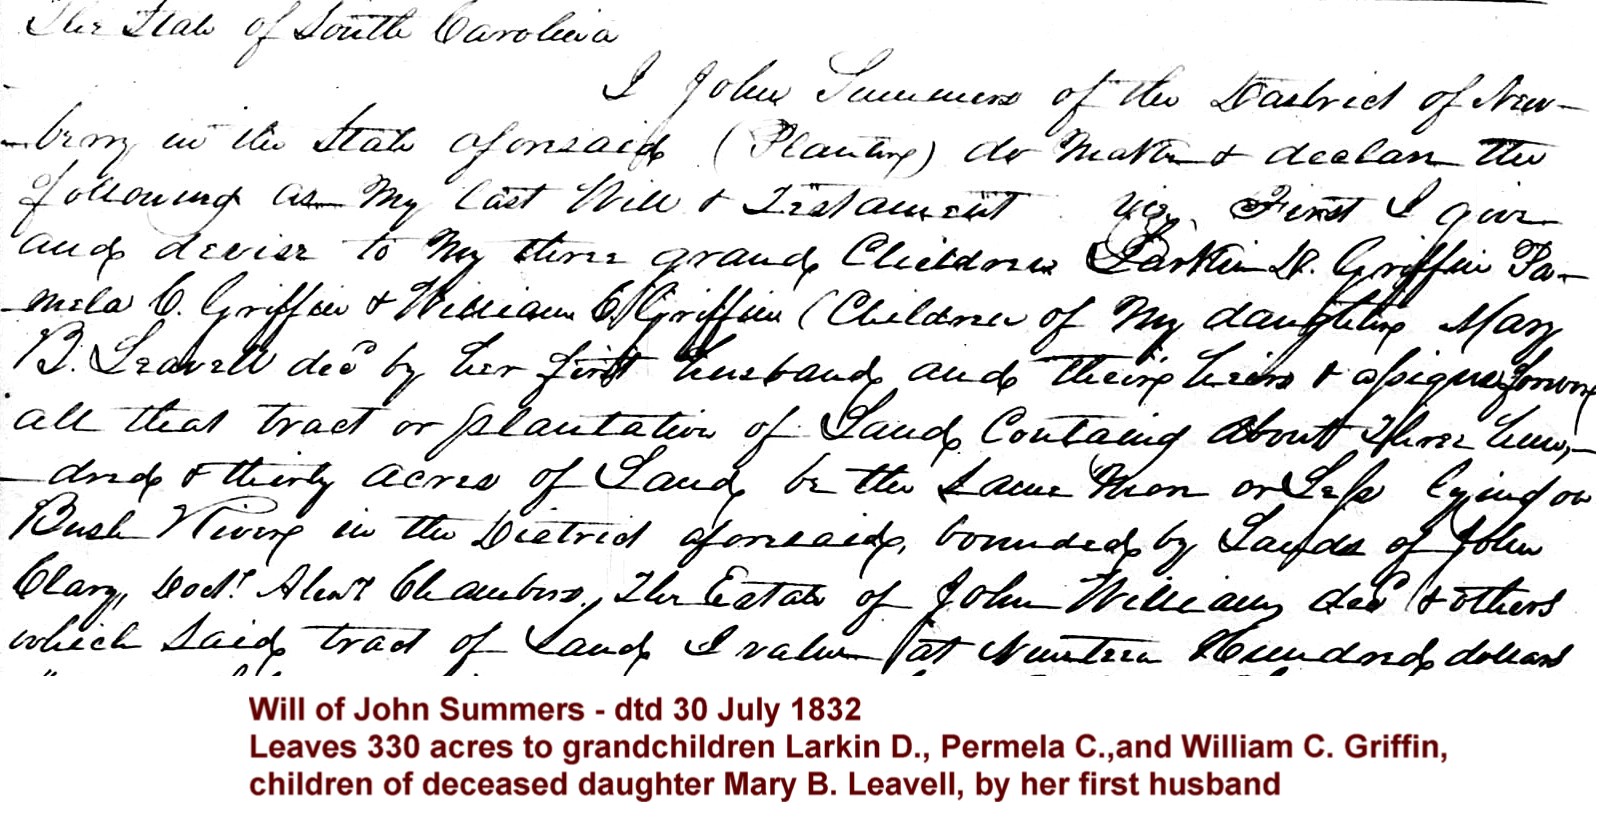 The State of South Carolina
I John Summers of the District of New-
-berry in the State aforesaid (Planter) do Make & declare the
following as My last Will & Testament viz. First I give
and devise to My three grand Children Larkin D. Griffin Pa-
-mela C. Griffin & William C. Griffin (Children of My daughter Mary
B. Leavell decd by her first husband and their heirs & assigns forever
all that tract or plantation of Land Containg about Three hun-
-dred & thirty acres of Land, be the same More or Less lying on
Bush River in the District aforesaid, bounded by Lands of John
Clary, Doctr. Alexr Chambers, The Estate of John Williams decd & others
which said tract of Land I value at Nineteen Hundred dollars
Will of John Summers - dtd 30 July 1832
Leaves 330 acres to grandchildren Larkin D., Permela C.,and William C. Griffin,
children of deceased daughter Mary B. Leavell, by her first husband